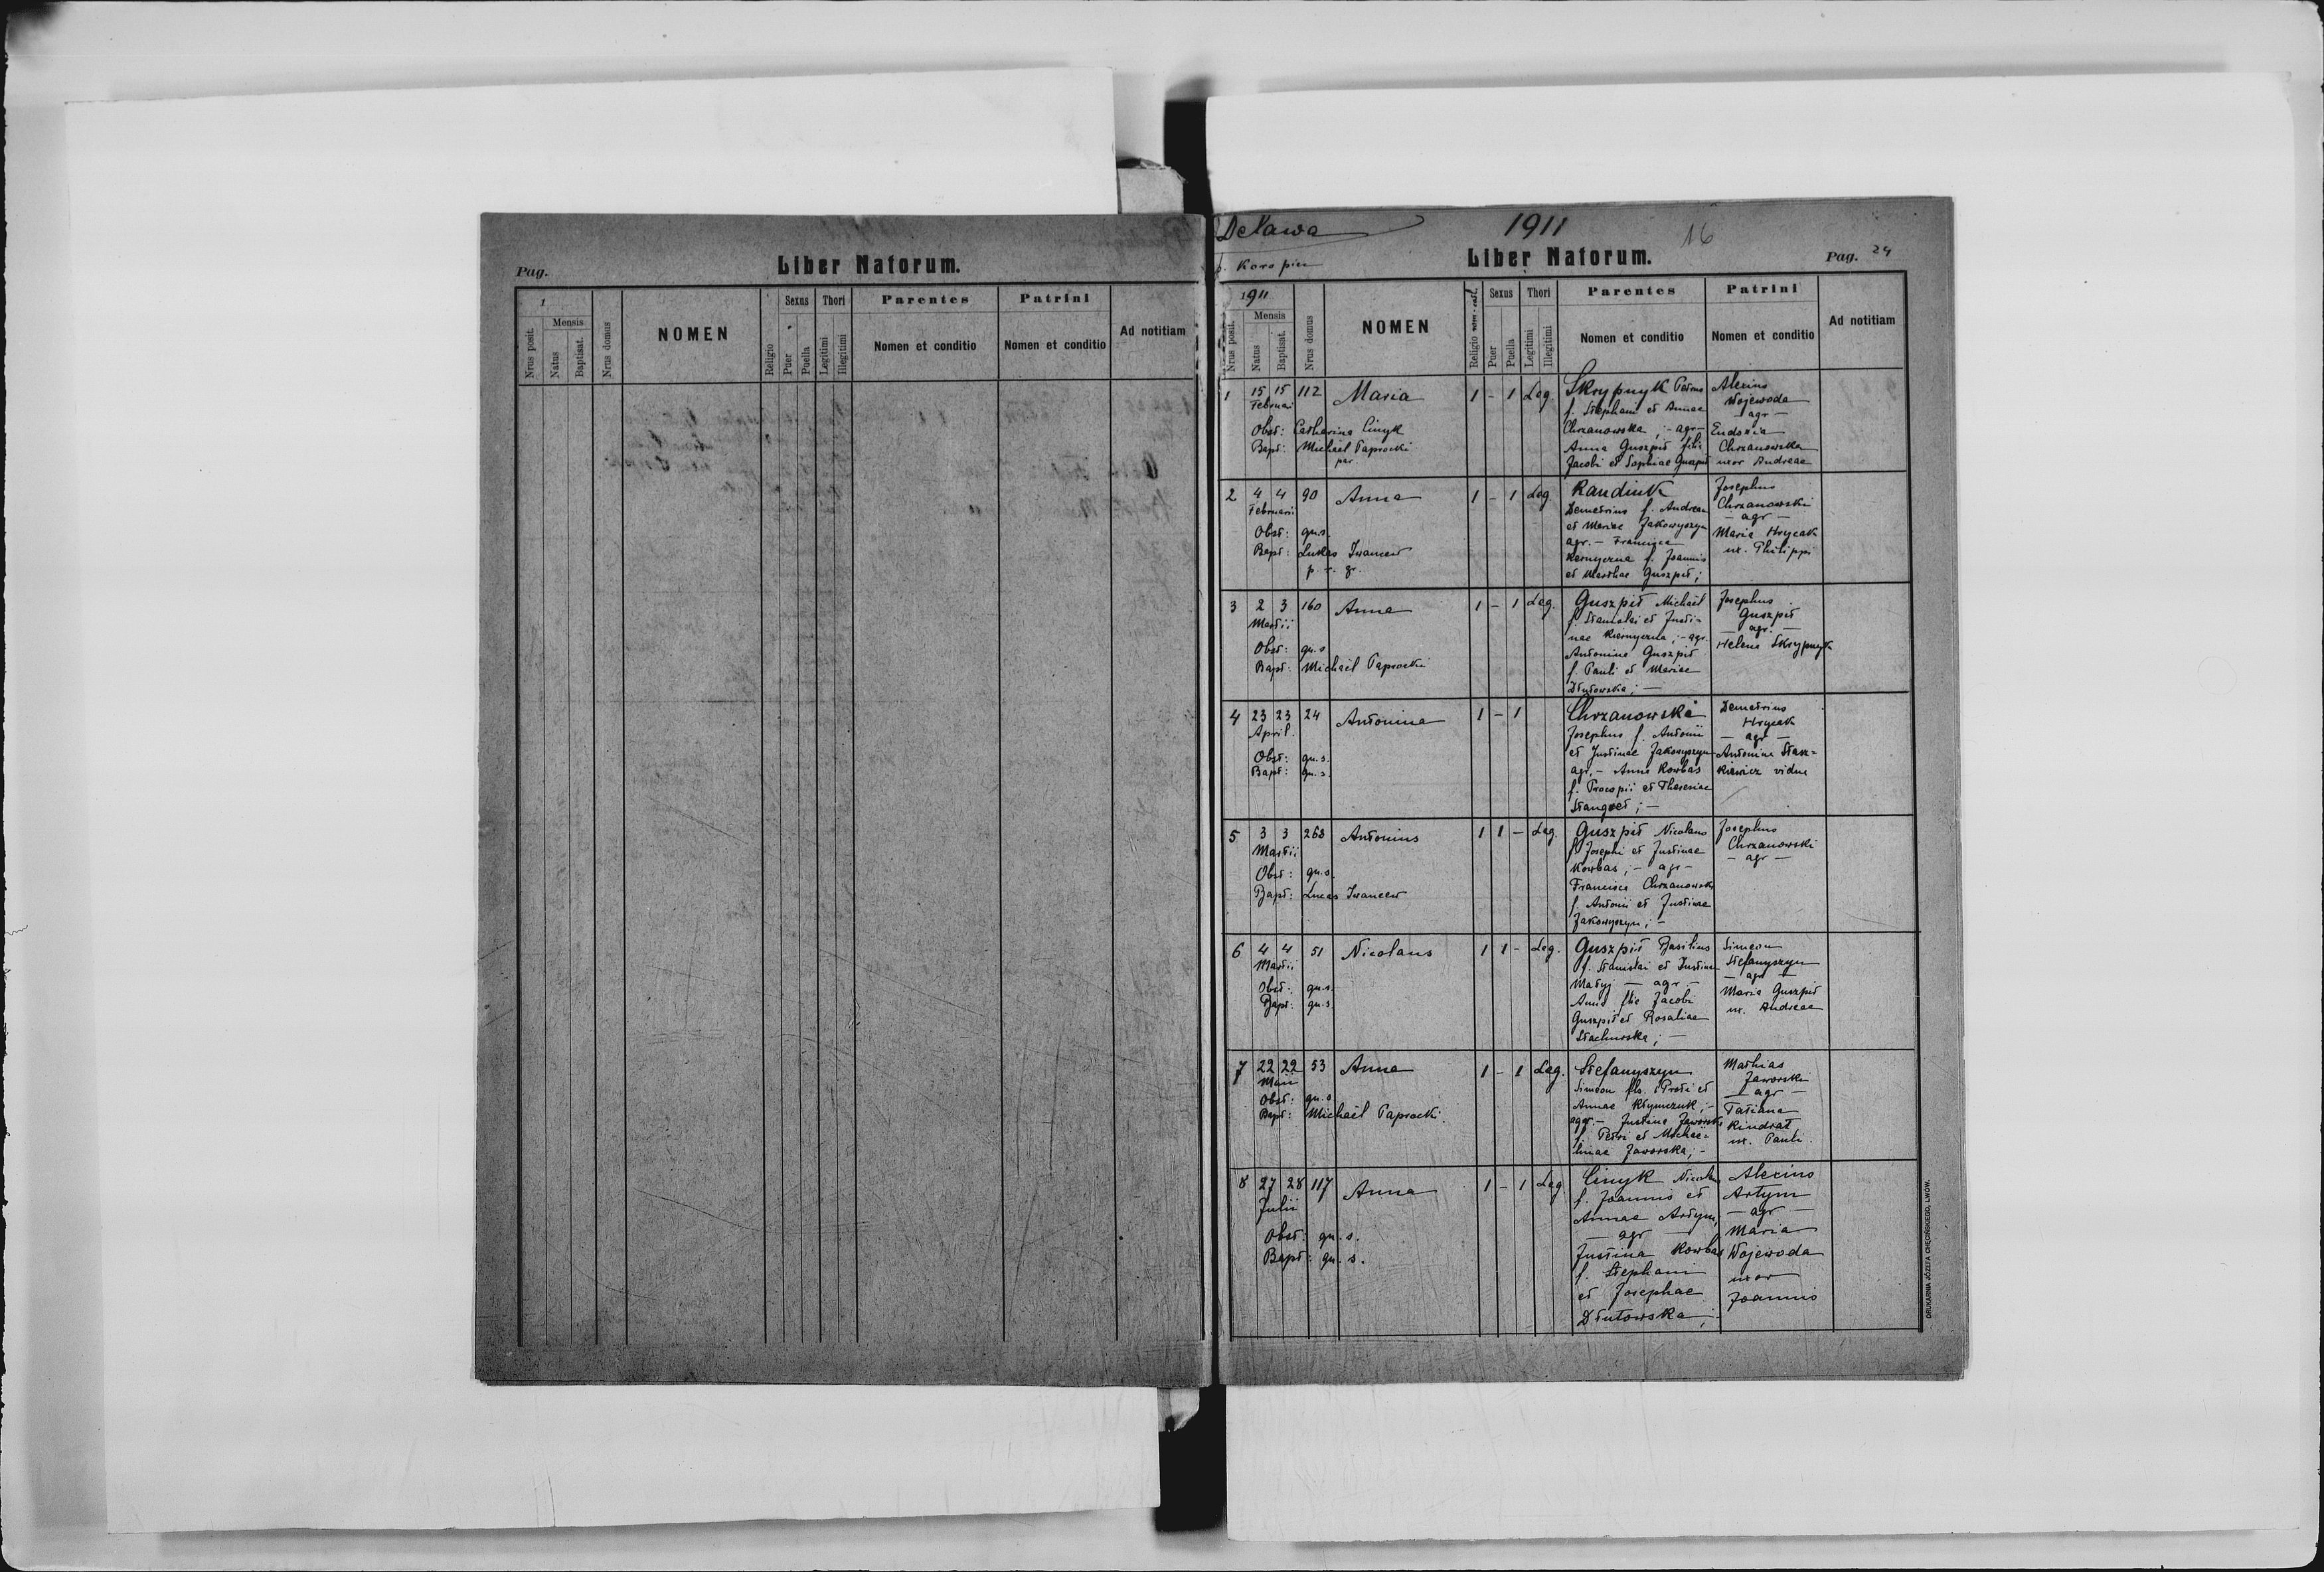 Pag.
Liber Natorum.
1
Nrus posit.
Mensis
Natus
Baptisat.
Nrus domus
NOMEN
Religio
Sexus
Puer
Puella
Thori
Legitimi
Illegitimi
Parentes
Nomen et conditio
Patrini
Nomen et conditio
Ad notitiam
Delawa
1911
16
p. Koropiec
Liber Natorum.
Pag. 24
1911
Nrus posit.
Mensis
Natus
Baptisat.
Nrus domus
NOMEN
Religio rom.-cath.
Sexus
Puer
Puella
Thori
Legitimi
Illegitimi
Parentes
Nomen et conditio
Patrini
Nomen et conditio
Ad notitiam
1 15 15 112 Maria 1 - 1 Leg.
Februari
Obst: Catharina Cinyk
Bapt: Michaël Paprocki
par.
Skrypnyk Petrus
f. Stephani et Annae
Chrzanowska ; - agr -
Anna Guszpit filia
Jacobi et Sophiae Guszpit
Alexius
Wojewoda
- agr -
Eudoxia
Chrzanowska
uxor Andreae
2 4 4 90 Anna 1 - 1 Leg.
Februarii
Obst: qu.s.
Bapt: Lukas Iwancew
p. r. gr.
Kandiuk
Demetrius f. Andreae
et Mariae Jakowyszyn
agr. - Francisca
Kernyczna f. Joannis
et Marthae Guszpit ;
Josephus
Chrzanowski
- agr -
Maria Hrycak
ux. Philippi
3 2 3 160 Anna 1 - 1 Leg.
Martii
Obst: qu.s
Bapt: Michaël Paprocki
Guszpit Michaël
f. Stanislai et Justi-
nae Kiernyczna ; - agr.
Antonina Guszpit
f. Pauli et Mariae
Dłutowska ; -
Josephus
Guszpit
- agr. -
Helena Skrypnyk
4 23 23 24 Antonina 1 - 1
April.
Obst: qu.s.
Bapt: qu.s.
Chrzanowski
Josephus f. Antonii
et Justinae Jakowyszyn
agr. - Anna Kowbas
f. Procopii et Theresiae
Stangret ; -
Demetrius
Hrycak
- agr -
Antonina Stasz=
kiewicz vidua
5 3 3 268 Antonius 1 1 - Leg.
Martii
Obst: qu.s.
Bapt: Lucas Iwancew
Guszpit Nicolaus
f. Josephi et Justinae
Kowbas ; - agr -
Francisca Chrzanowska
f. Antonii et Justinae
Jakowyszyn ; -
Josephus
Chrzanowski
- agr -
6 4 4 51 Nicolaus 1 1 - Leg.
Martii
Obst: qu.s.
Bapt: qu.s.
Guszpit Basilius
f. Stanislai et Justinae
Matyj - agr -
Anna fia Jacobi
Guszpit et Rosaliae
Stachurska ; -
Simeon
Stefanyszyn
- agr -
Maria Guszpit
ux. Andreae
7 22 22 53 Anna 1 - 1 Leg.
Maii
Obst: qu.s
Bapt: Michaël Paprocki
Stefanyszyn
Simeon fls. Proti et
Annae Klymczuk ; -
agr. - Justina Jaworska
f. Petri et Michae=
linae Jaworska ; -
Mathias
Jaworski
- agr -
Tatiana
Kindrat
ux. Pauli
8 27 28 117 Anna 1 - 1 Leg
Julii
Obst: qu.s.
Bapt: qu.s.
Cinyk Nicolaus
f. Joannis et
Annae Artym,
- agr -
Justina Kowbas
f. Stephani
et Josephae
Dłutowska ; -
Alexius
Artym
- agr -
Maria
Wojewoda
uxor
Joannis
DRUKARNIA JÓZEFA CHĘCIŃSKIEGO, LWÓW.